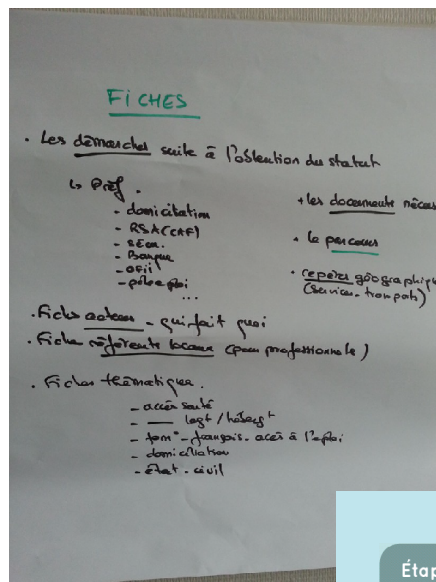 FICHES
• Les démarches suite à l'obtention du statut
↳ Préf.
- domiciliation
- RSA (CAF)
- Banque
- OFII
- pôle emploi
...
+ les documents néces
+ le parcours
• repères géographiqu
(services - transports)
• Fiches acteurs - qui fait quoi
• Fiche référents locaux (pour professionnels)
• Fiches thématique.
- accès santé
- — logt / hébergt
- form° - français - accès à l'emploi
- domiciliation
- état - civil
Étap